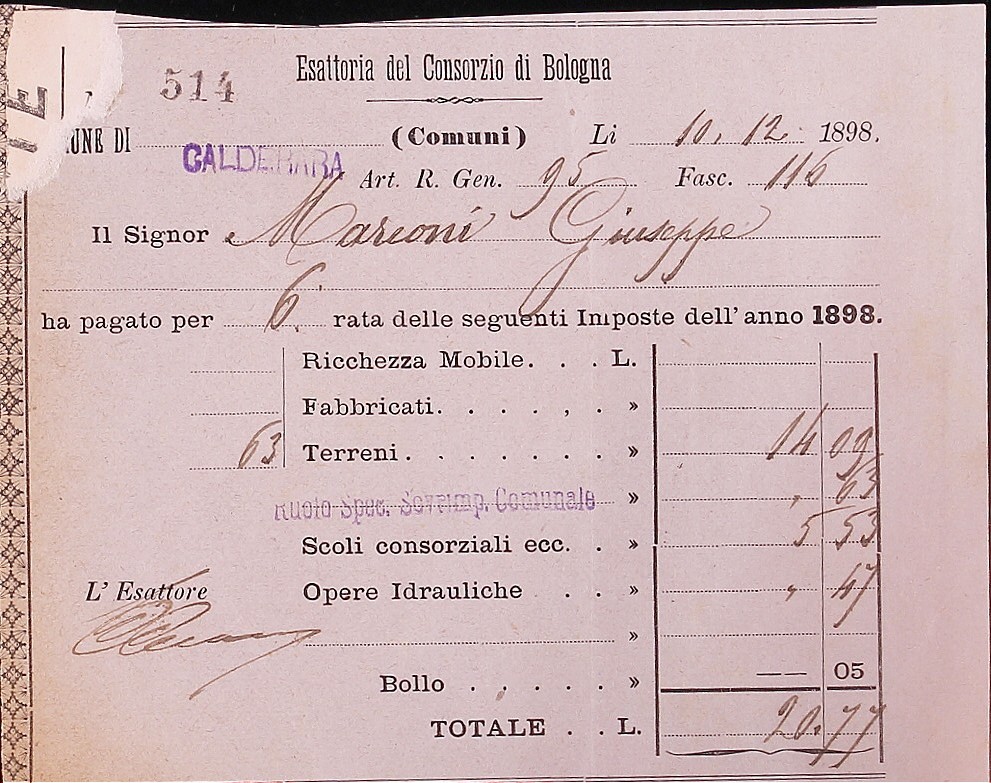 514
Esattoria del Consorzio di Bologna
UNE DI CALDERARA (Comuni) Li 10. 12. 1898.
Art. R. Gen. 95 Fasc. 116
Il Signor Marconi Giuseppe
ha pagato per 6. rata delle seguenti Imposte dell'anno 1898.
Ricchezza Mobile. . . L.
Fabbricati. . . . , . »
63 Terreni. . . . . . . » 14 09
Ruolo Spec. Sovrimp. Comunale » , 63
Scoli consorziali ecc. . » 5 53
L' Esattore Opere Idrauliche . . » , 47
»
Bollo . . . . . » —— 05
TOTALE . . L. 20.77